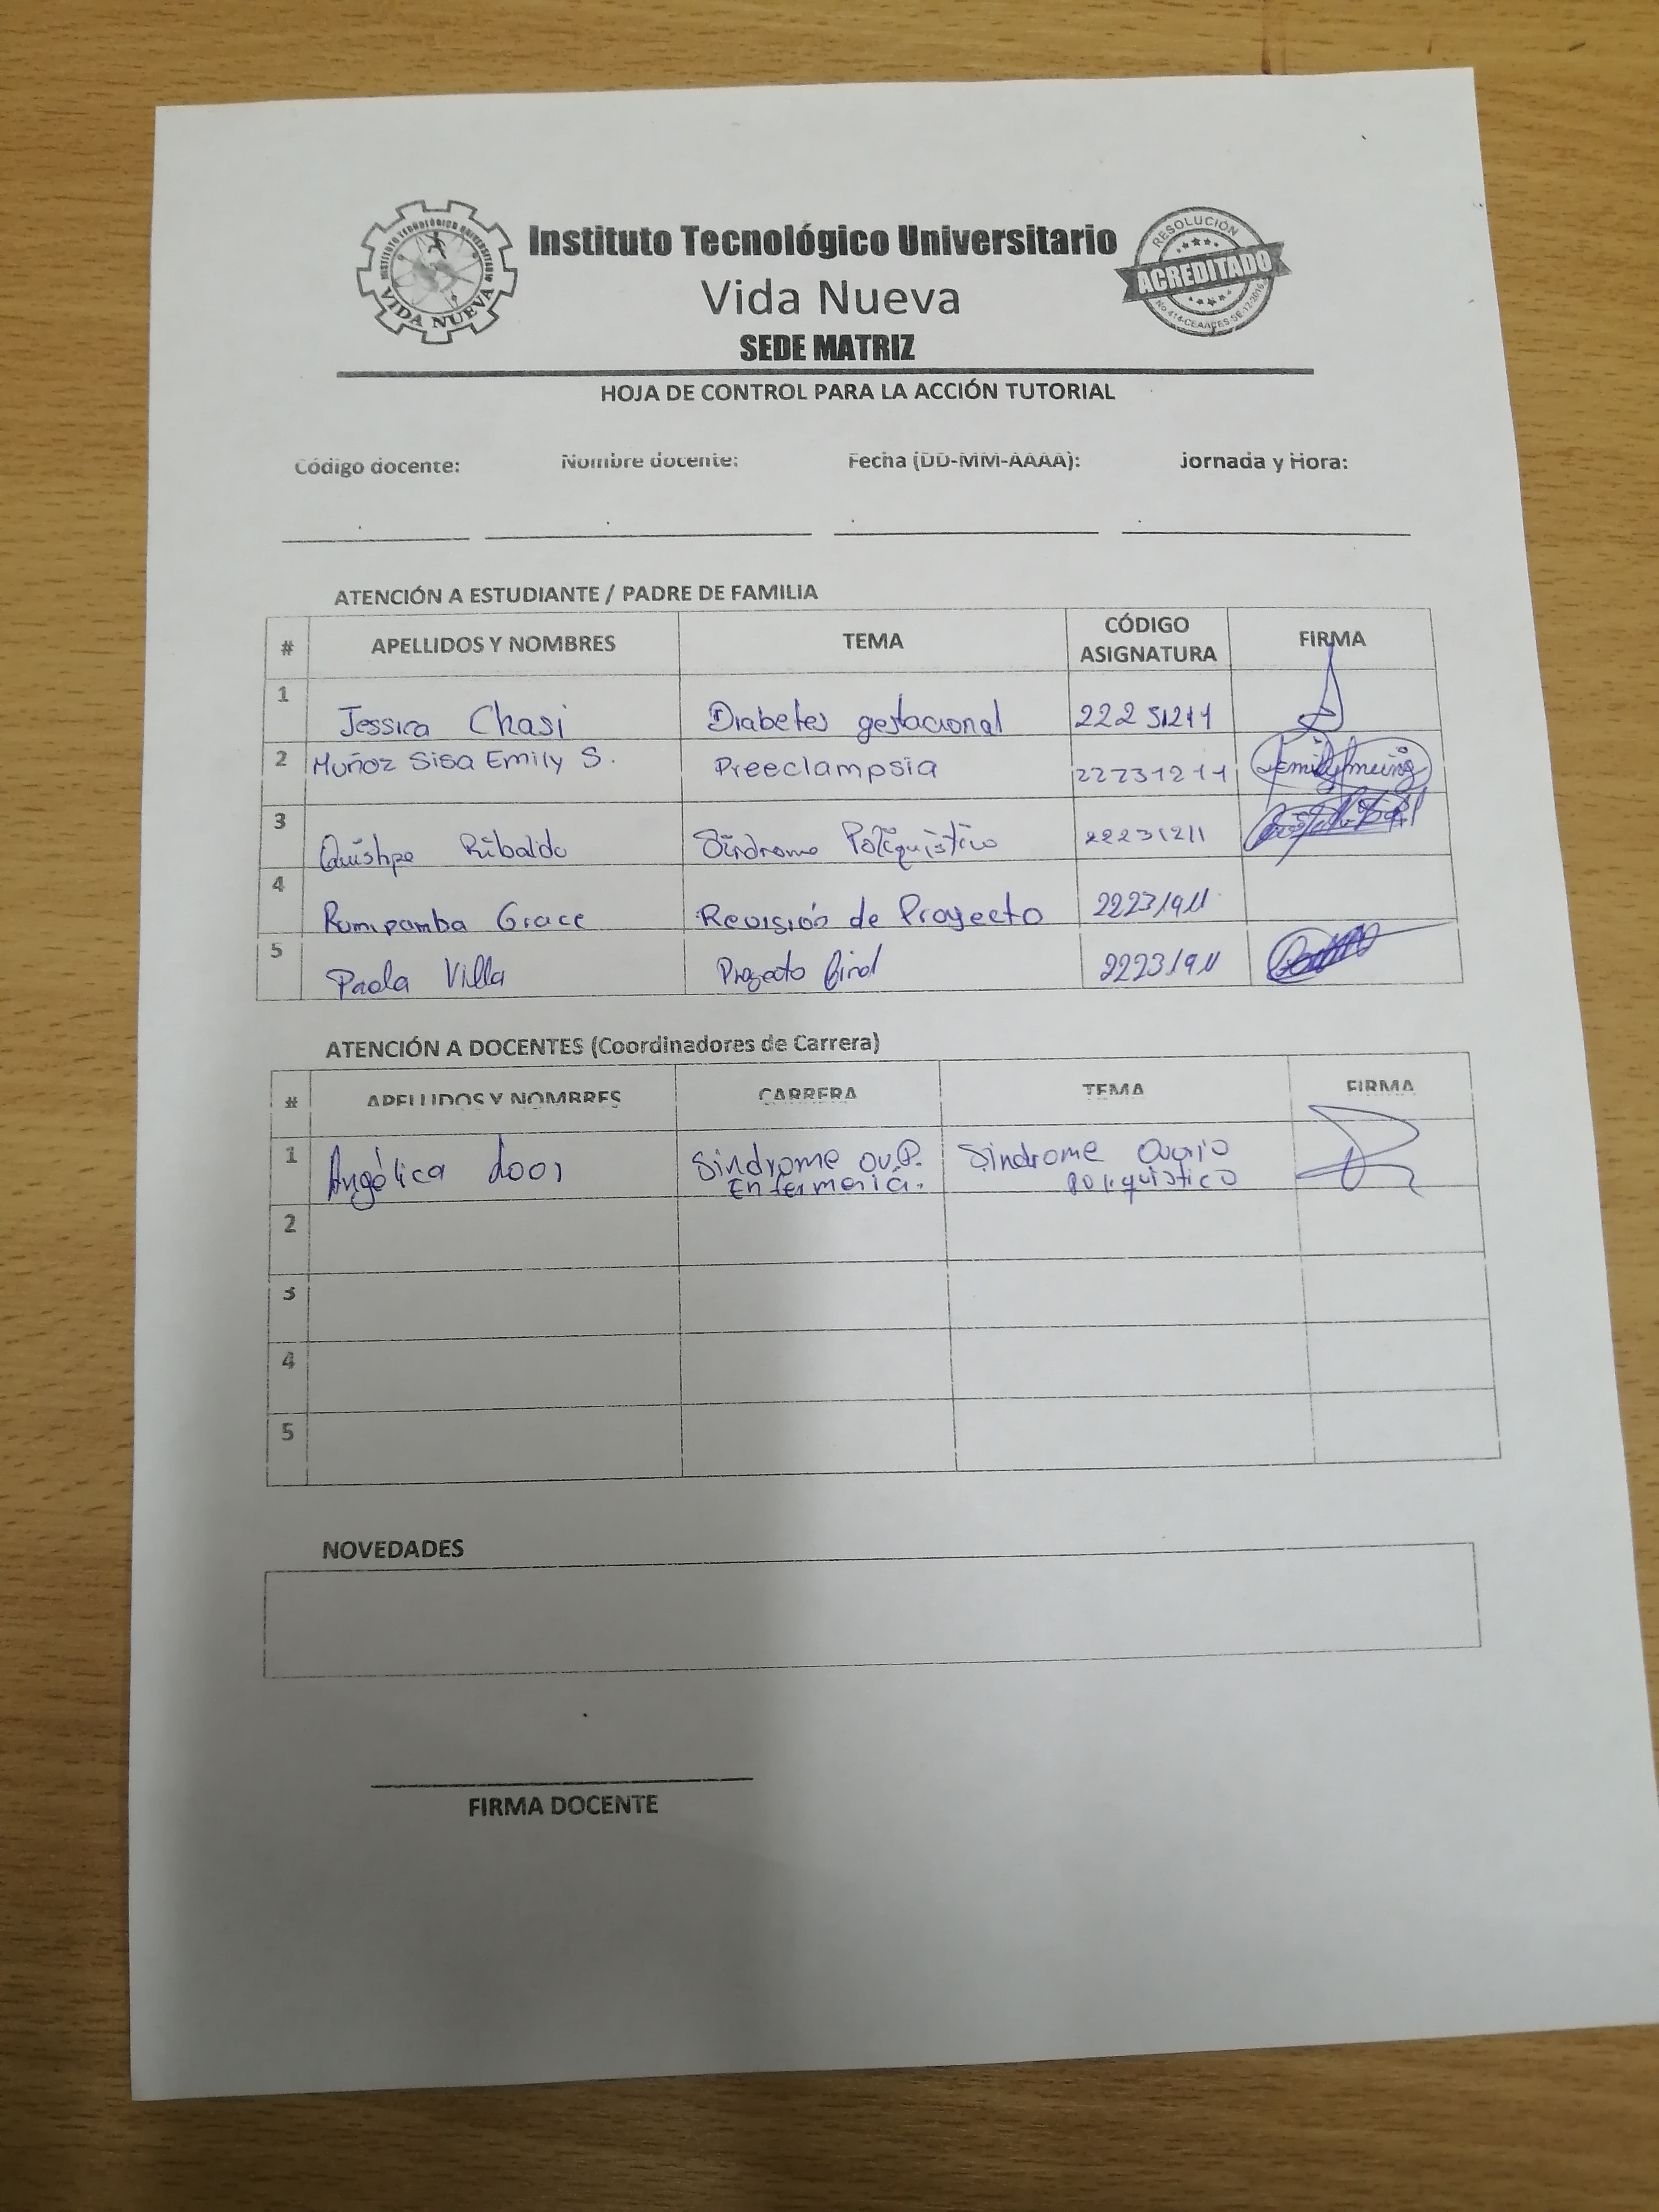 INSTITUTO TECNOLÓGICO UNIVERSITARIO
VIDA NUEVA
Instituto Tecnológico Universitario
Vida Nueva
SEDE MATRIZ
RESOLUCIÓN
ACREDITADO
HOJA DE CONTROL PARA LA ACCIÓN TUTORIAL
Código docente: Nombre docente: Fecha (DD-MM-AAAA): Jornada y Hora:
ATENCIÓN A ESTUDIANTE / PADRE DE FAMILIA
# APELLIDOS Y NOMBRES TEMA CÓDIGO ASIGNATURA FIRMA
1 Jessica Chasi Diabetes gestacional 22231211
2 Muñoz Sisa Emily S. Preeclampsia 22231211
3 Quishpe Ribaldo Síndrome Poliquístico 22231211
4 Rumipamba Grace Revisión de Proyecto 22231911
5 Paola Villa Proyecto final 22231911
ATENCIÓN A DOCENTES (Coordinadores de Carrera)
# APELLIDOS Y NOMBRES CARRERA TEMA FIRMA
1 Angélica Sindrome OV.P. Enfermería. Sindrome Ovario Poliquistico
2
3
4
5
NOVEDADES
FIRMA DOCENTE